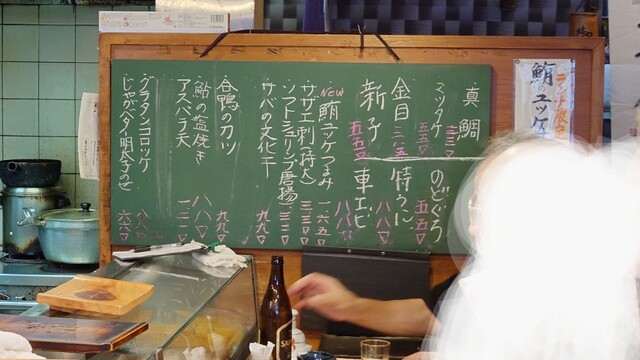 真鯛
三三〇
マツタケ
五五〇
のどぐろ
五五〇
金目
特うに
八八〇
新子
五五〇
車エビ
八八〇
New
鮪ユッケつまみ
一、六五〇
サザエ刺(特大)
三三〇〇
ソフトシュリンプ唐揚
一三二〇
サバの文化干
九九〇
合鴨のカツ
九九〇
鮪の塩焼き
八八〇
アスパラ天
一一〇〇
グラタンコロッケ
八八〇
じゃがバタイ明太子のせ
六六〇
ランチ限定
鮪のユッケ